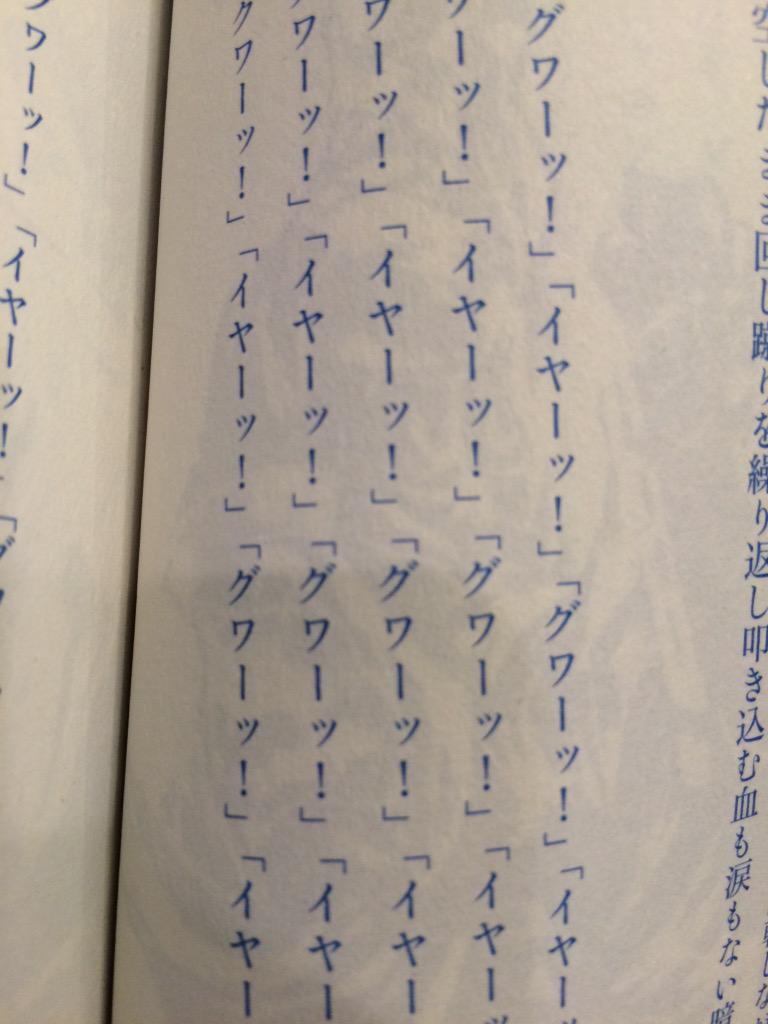 空したまま回し蹴りを繰り返し叩き込む血も涙もない暗
グワーッ!」「イヤーッ!」「グワーッ!」「イヤーッ
ワーッ!」「イヤーッ!」「グワーッ!」「イヤーッ
ワーッ!」「イヤーッ!」「グワーッ!」「イヤー
グワーッ!」「イヤーッ!」「グワーッ!」「イヤー
グワーッ!」「イヤーッ!」「グワーッ!」「イヤー
グワーッ!」「イヤーッ!」「グワ